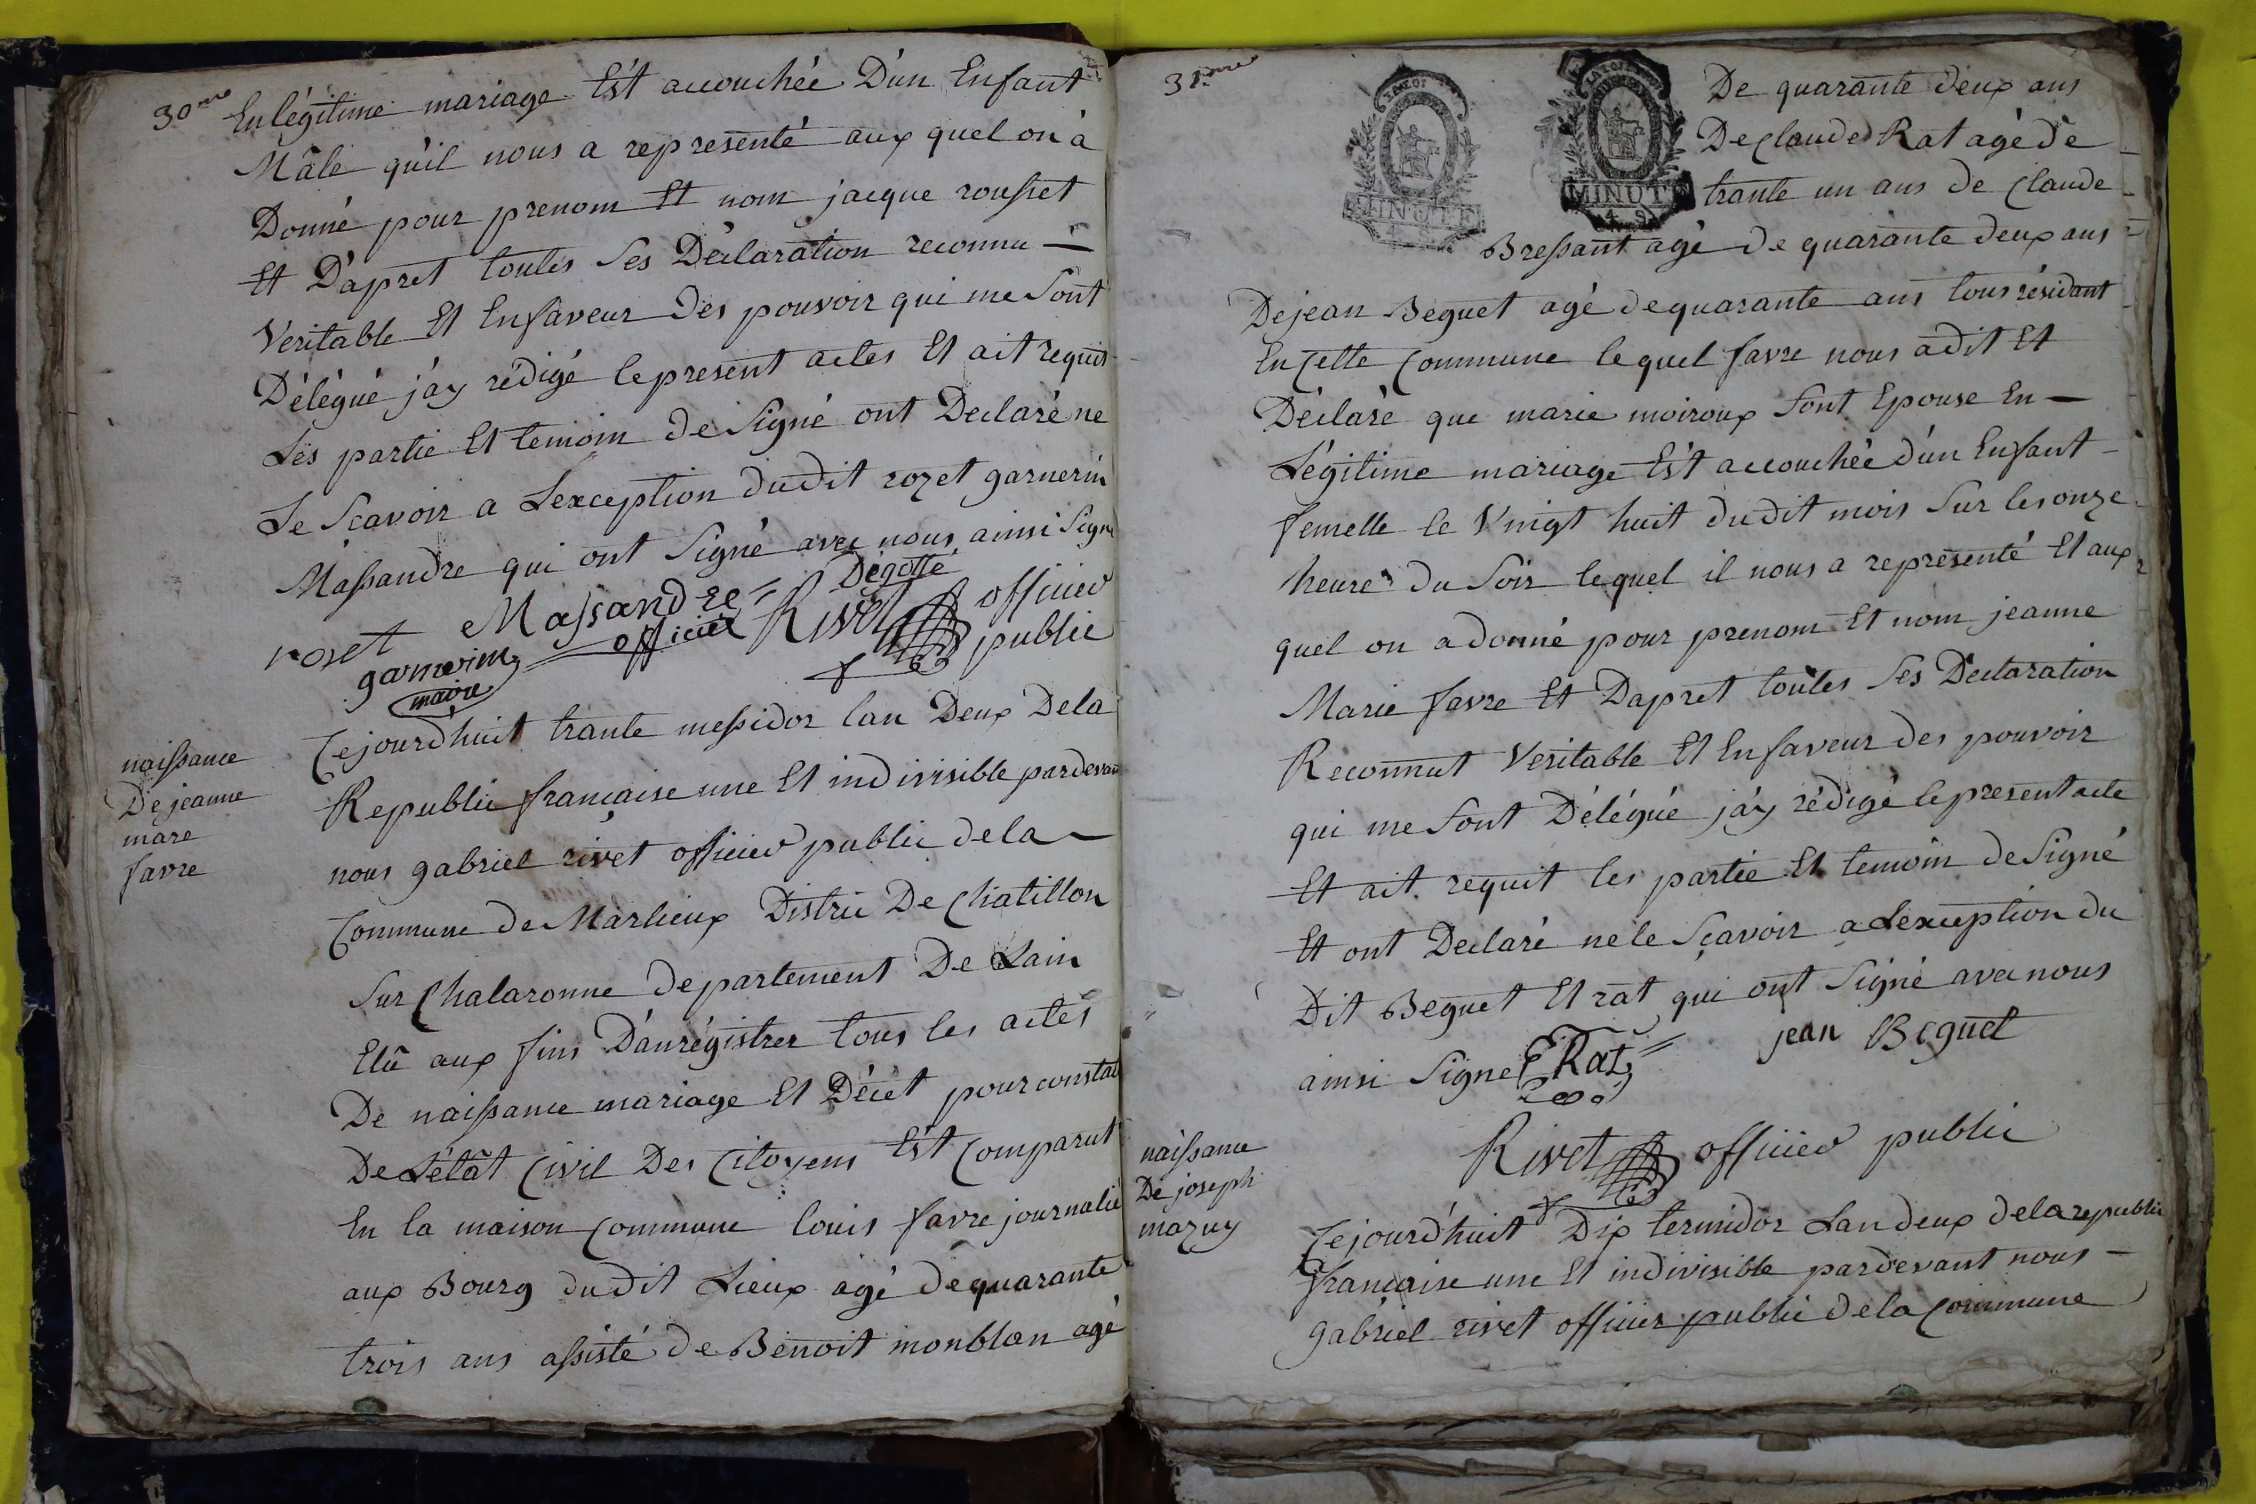 30me
En légitime mariage Est accouchée D'un Enfant
Mâle qu'il nous a representé aux quel on à
Donné pour prenom Et nom jacque rousset
Et D'apret toutes ses Déclaration reconnu —
Veritable Et Enfaveur Des pouvoir qui me Sont
Délégué j'ay rédigé le present actes Et ait requit
Les partie Et temoin de Signé ont Declaré ne
Le Scavoir a Lexception dudit rozet garnerin
Massandre qui ont Signé avec nous ainsi Signé
Dégotté
roset Massandre officier Rivet officier public
garnerin
maire
naissance
De jeanne
mare
favre
Cejourd'huit trante messidor lan Deux Dela
Republic française une Et indivisible pardevant
nous gabriel rivet officier public dela —
Commune de Marlieux Distric De Chatillon
Sur Chalaronne departement De Lain
Elû aux fins D'anrégistrer tous les actes
De naissance mariage Et Décet pour constat
De L'étât Civil Des Citoyens Est Comparut
En la maison Commune louis favre journalié
aux Bourg dudit Lieux agé dequarante
trois ans assisté de Benoit monblan agé
31me
MINUTE
MINUTE
De quarante deux ans
De Claude Rat agé de
trante un ans de Claude
Bressant agé de quarante deux ans
De jean Beguet agé dequarante ans tous résidant
En Cette Commune lequel favre nous a dit Et
Déclaré que marie moiroux Sont Epouse En —
Légitime mariage Est accouchée d'un Enfant —
femelle le Vingt huit dudit mois Sur les onze
heures du Soir lequel il nous a representé Et aux
quel on a donné pour prenom Et nom jeanne
Marie favre Et Dapret toutes Ses Declaration
Reconnut Veritable Et Enfaveur des pouvoir
qui me Sont Délégué j'ay rédigé le present acte
Et ait requit les partie Et temoin de Signé
Et ont Declaré ne le Sçavoir a Lexception du
Dit Beguet Et rat qui ont Signé avec nous
ainsi Signe C Rat jean Beguet
Rivet officier public
naissance
De joseph
mazuy
Cejourd'huit Dix termidor Lan deux dela republic
française une Et indivisible pardevant nous —
gabriel rivet officier public dela Commune